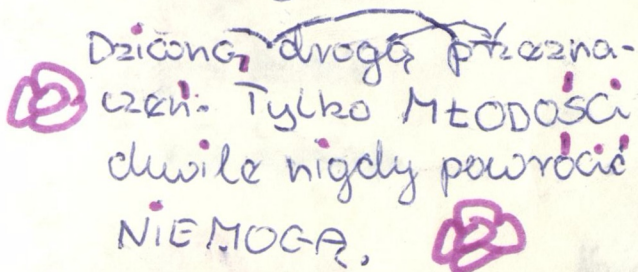 Dziconą drogą przezna-
czeń. Tylko MŁODOŚCi
chwile nigdy powrócić
NiEMOGĄ.